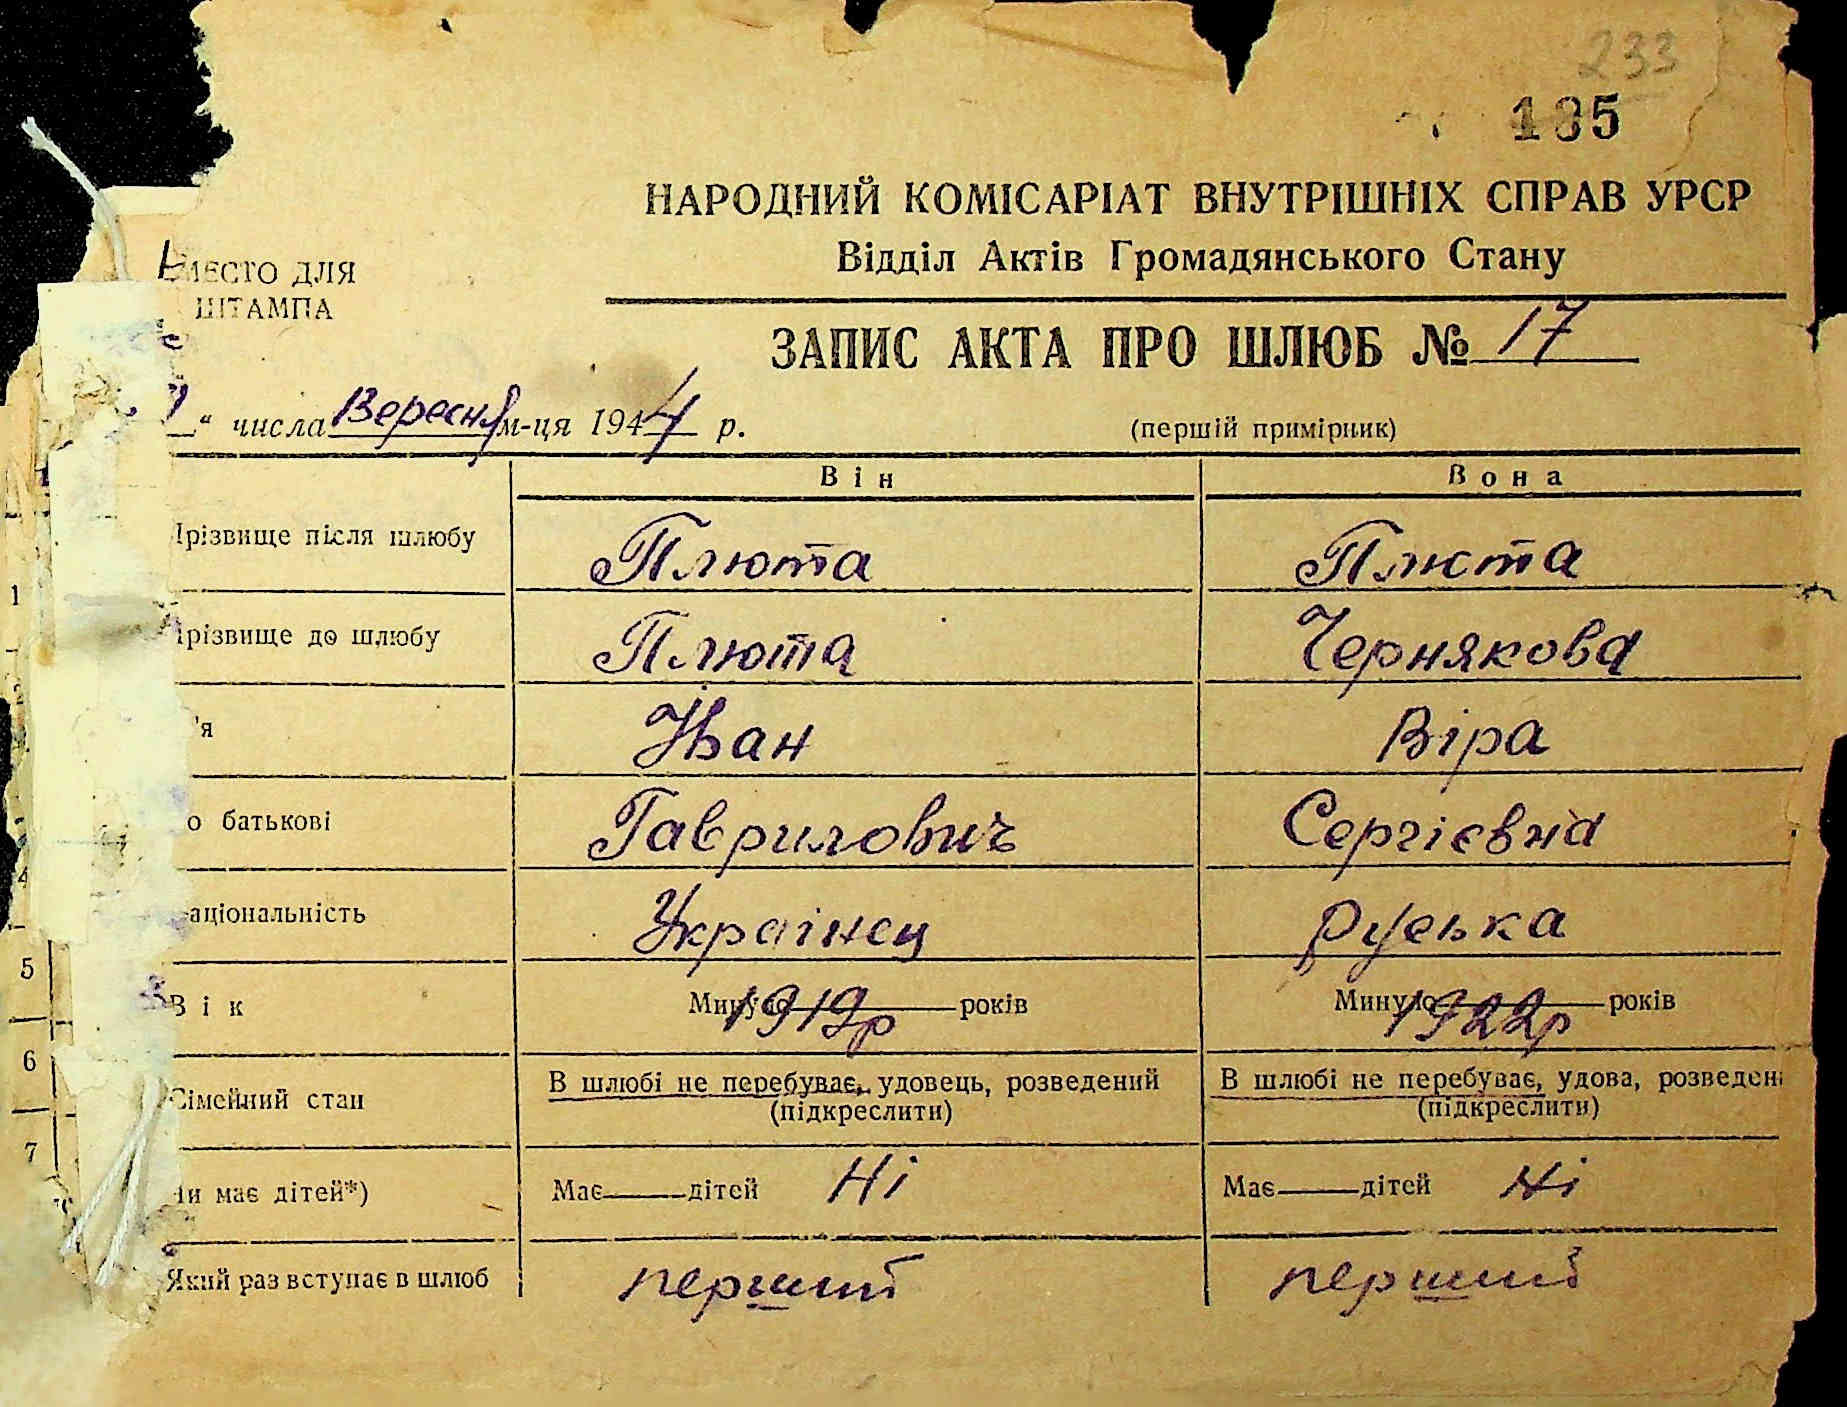 233
195
НАРОДНИЙ КОМІСАРІАТ ВНУТРІШНІХ СПРАВ УРСР
Відділ Актів Громадянського Стану
МЕСТО ДЛЯ
ШТАМПА
ЗАПИС АКТА ПРО ШЛЮБ № 17
" числа Вересня м-ця 1944 р.
(перший примірник)
Він Вона
Прізвище після шлюбу Плюта Плюта
Прізвище до шлюбу Плюта Чернякова
'я Іван Віра
о батькові Гаврилович Сергієвна
аціональність Украінец Руська
Вік Минуло 1919р років Минуло 1922р років
Сімейний стан В шлюбі не перебуває, удовець, розведений В шлюбі не перебуває, удова, розведен
(підкреслити) (підкреслити)
Чи має дітей*) Має дітей Ні Має дітей Ні
Який раз вступає в шлюб перший перший
1
4
5
6
7